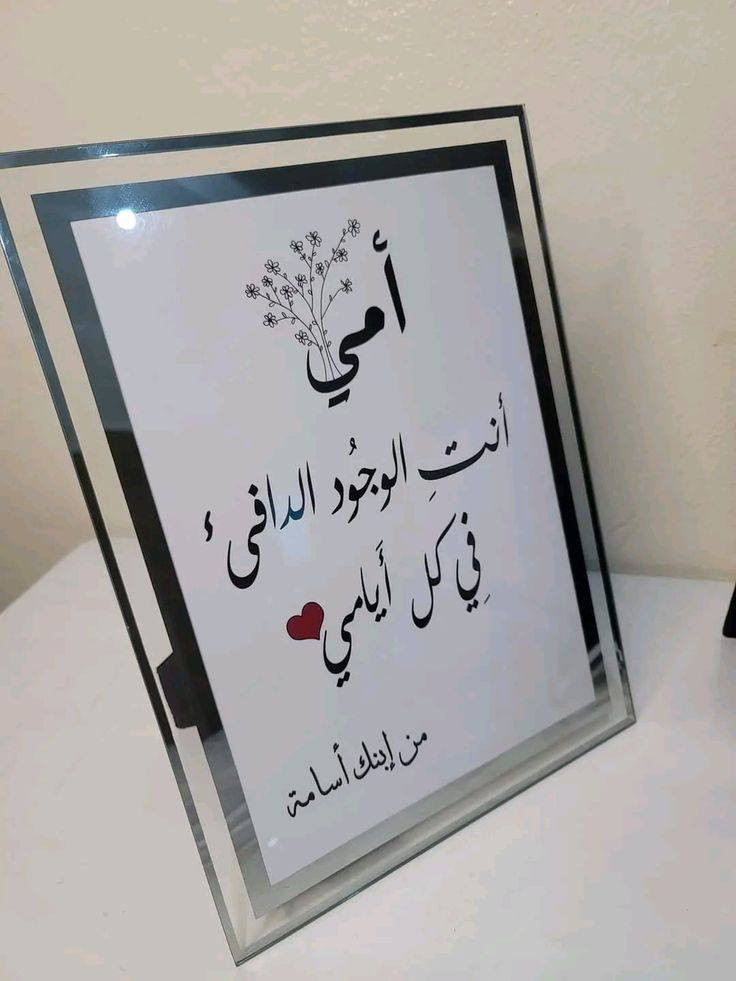 أمي
أنتِ الوجُود الدافئ ء
فِي كل أيَامي
من إبنك أسامة